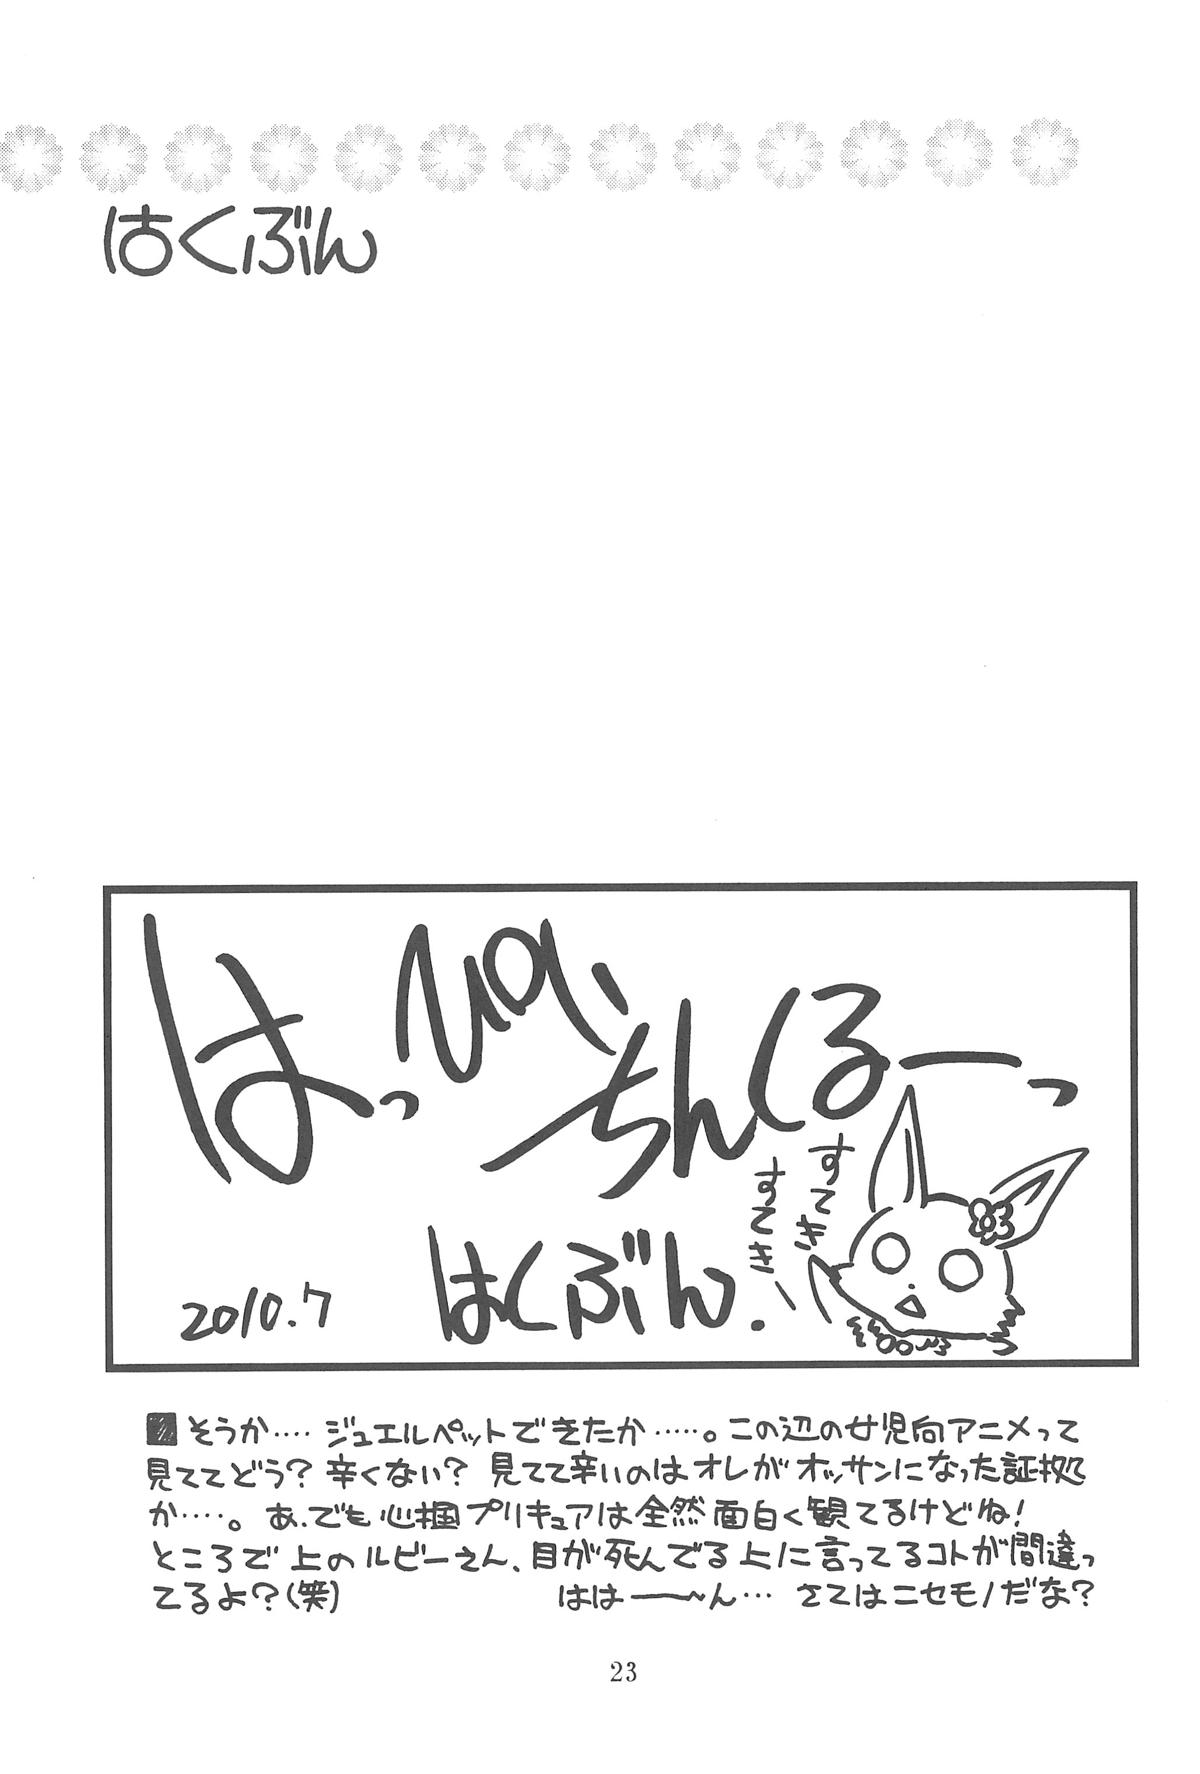 はくぶん
はっぴぃ
ちんくるーっ
すてき
すてきー
はくぶん.
2010.7
■そうか‥‥ ジュエルペットできたか‥‥‥。この辺の女児向アニメって
見ててどう？辛くない？ 見てて辛いのはオレがオッサンになった証拠
か‥‥‥。あ、でも心掴プリキュアは全然面白く観てるけどね！
ところで上のルビーさん、目が死んでる上に言ってるコトが間違っ
てるよ？(笑)　　はは――～ん… さてはニセモノだな？
23